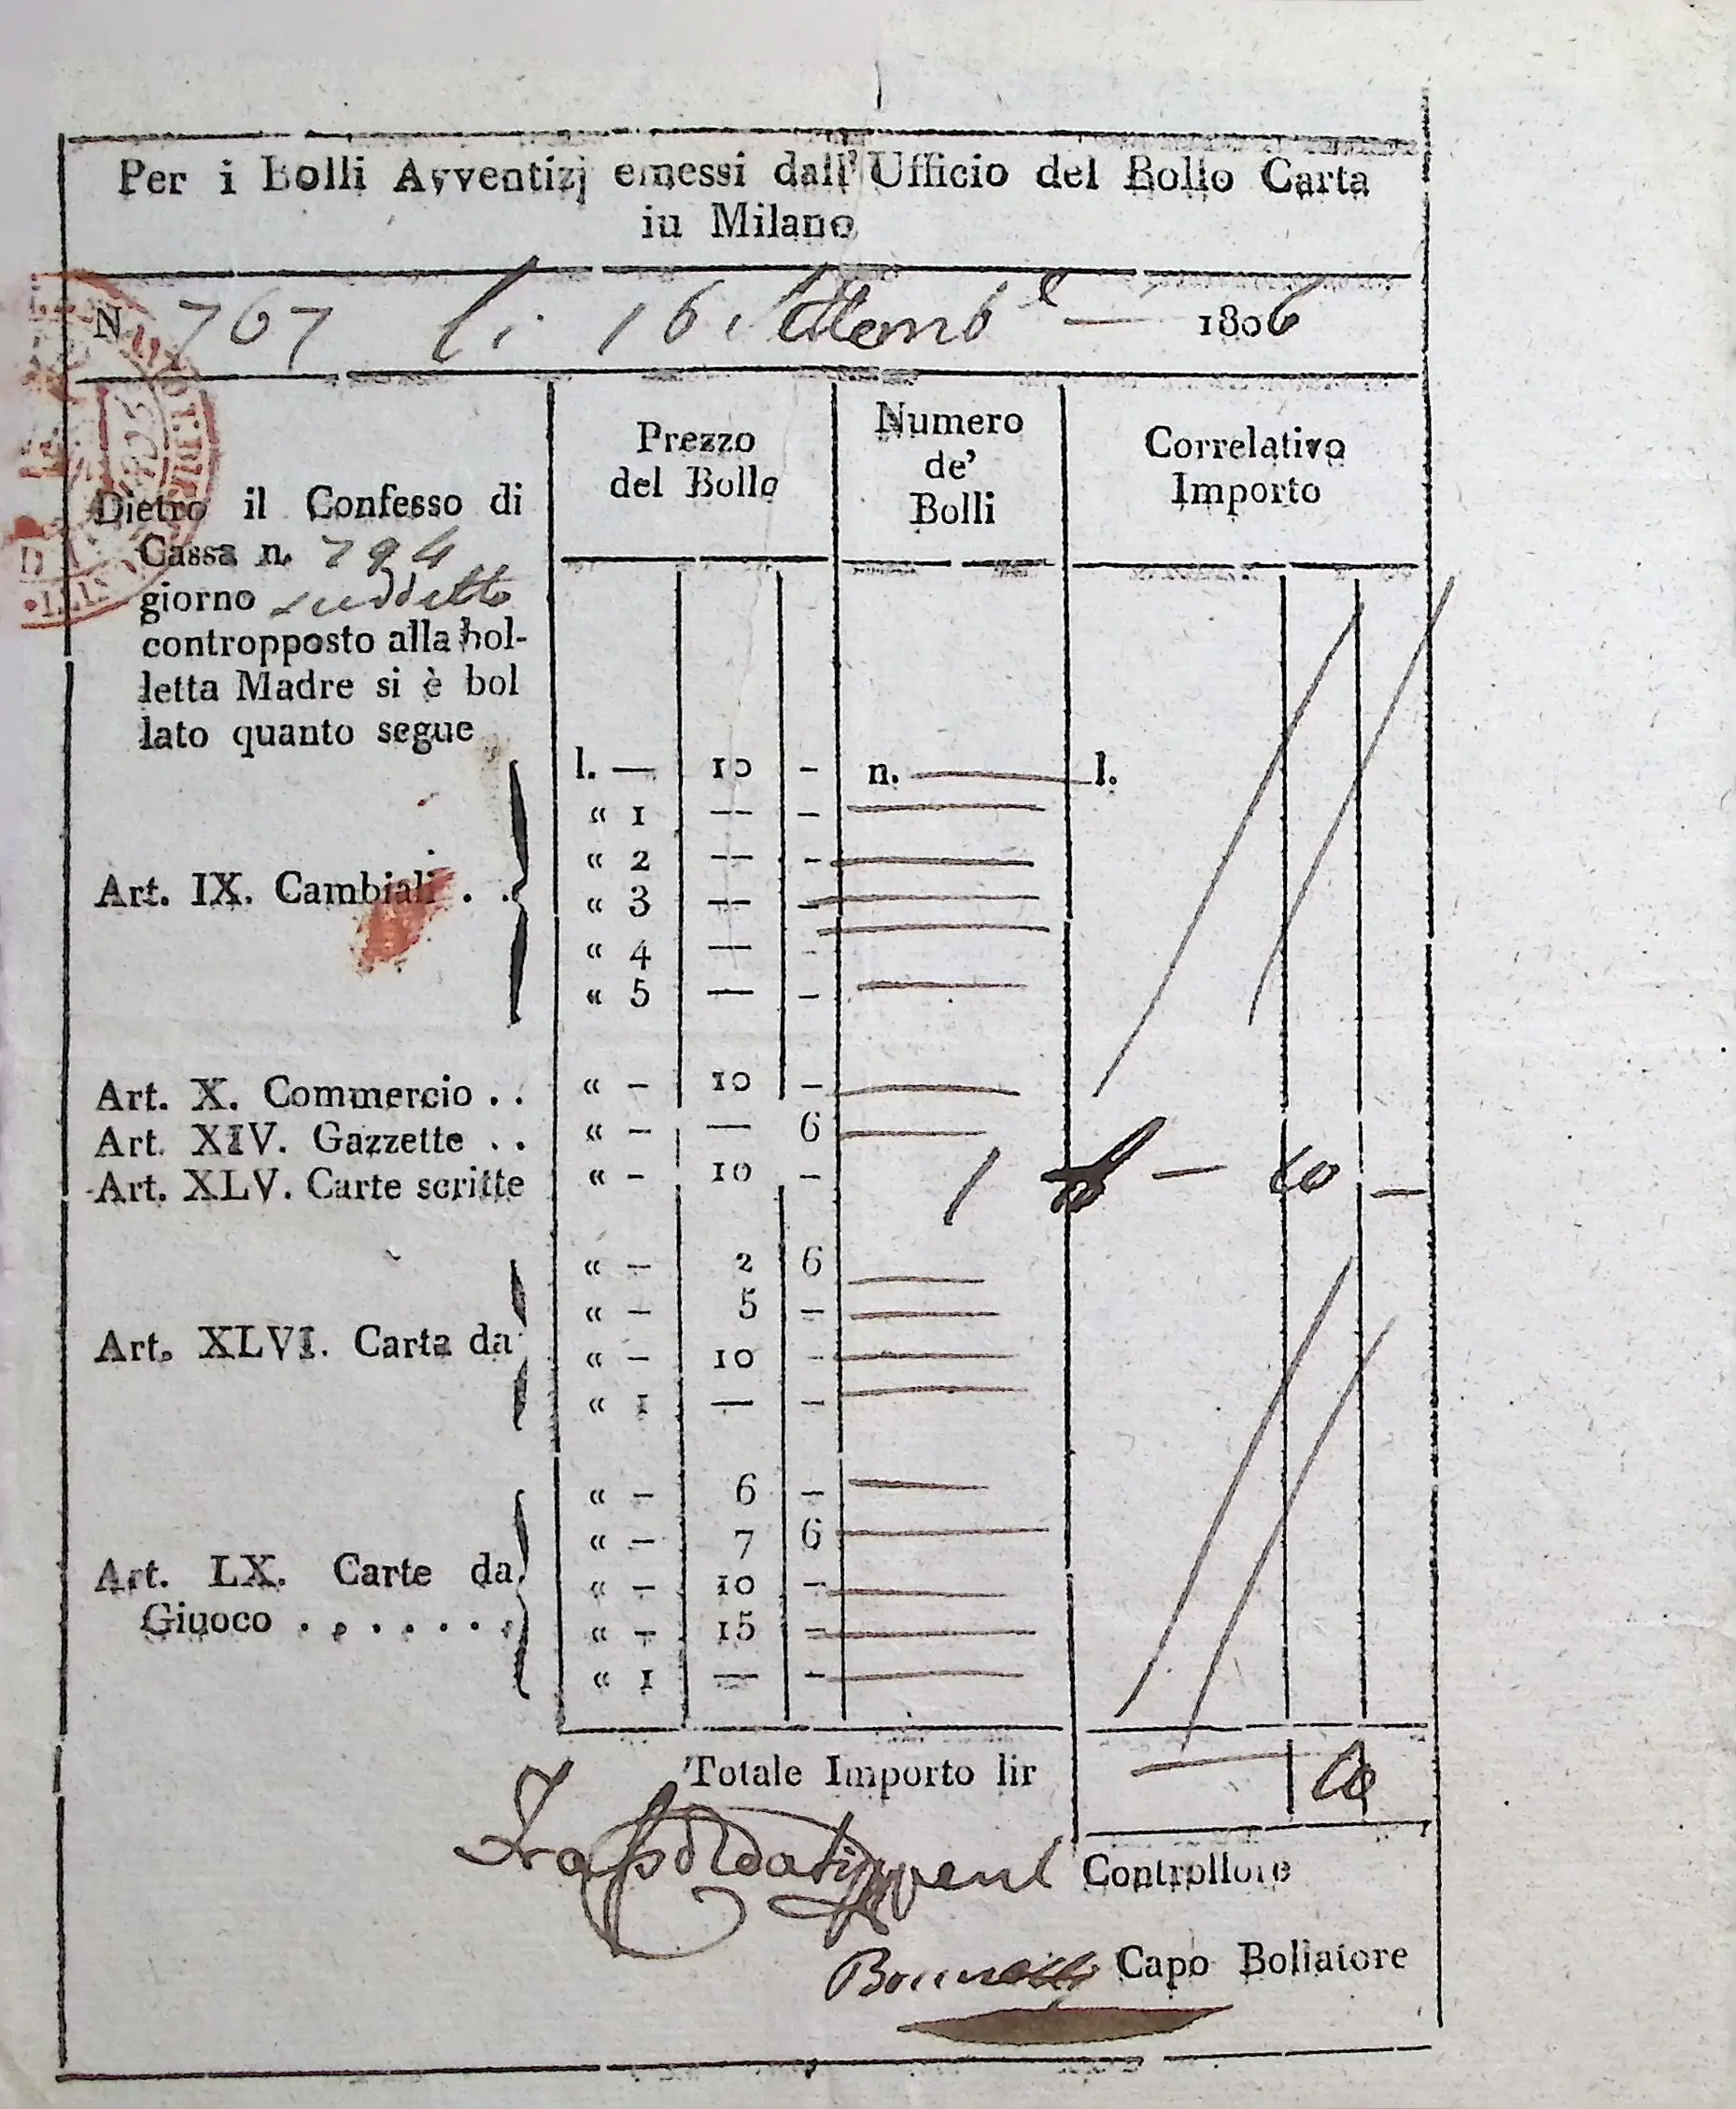 Per i Bolli Avventizj emessi dall' Ufficio del Bollo Carta
in Milano
N. 767 li 16 Settembe — 1806
Dietro il Confesso di
Cassa n. 794
giorno suddetto
contropposto alla bol-
letta Madre si è bol
lato quanto segue
Prezzo
del Bollo
Numero
de'
Bolli
Correlativo
Importo
l. — 10 - n. — l.
Art. IX. Cambiali . .
« 1 — -
« 2 — -
« 3 — -
« 4 — -
« 5 — -
Art. X. Commercio . . « - 10 -
Art. XIV. Gazzette . . « - — 6
Art. XLV. Carte scritte « - 10 - 1 — 10 —
Art. XLVI. Carta da
« - 2 6
« - 5 -
« - 10 -
« 1 — -
Art. LX. Carte da
Giuoco . . . . . .
« - 6 -
« - 7 6
« - 10 -
« - 15 -
« 1 — -
Totale Importo lir — 10
Controllore
Capo Bollatore